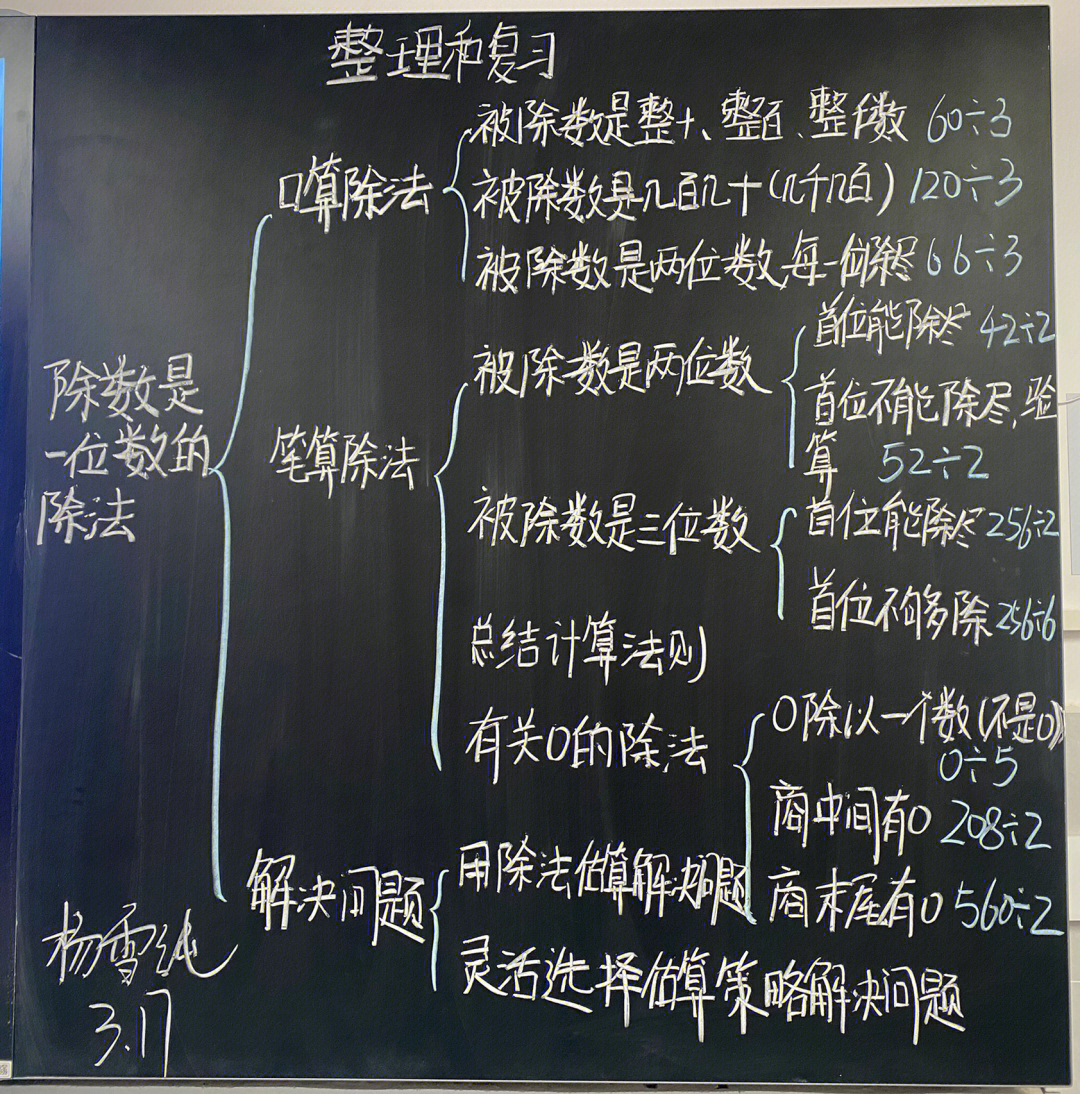 整理和复习
除数是
一位数的
除法
口算除法
被除数是整十、整百、整千数 60÷3
被除数是几百几十(几千几百) 120÷3
被除数是两位数,每一位除尽 66÷3
笔算除法
被除数是两位数
首位能除尽 42÷2
首位不能除尽,验
算 52÷2
被除数是三位数
首位能除尽 256÷2
首位不够除 256÷6
总结计算法则
有关0的除法
0除以一个数(不是0)
0÷5
商中间有0 208÷2
商末尾有0 560÷2
解决问题
用除法估算解决问题
灵活选择估算策略解决问题
杨雪纯
3.17